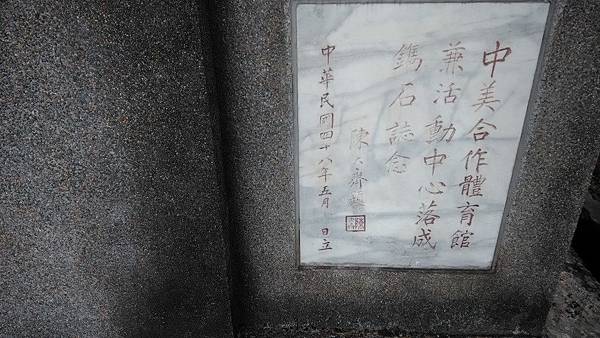 中美合作體育館
兼活動中心落成
鐫石誌念
陳大齊題
中華民國四十八年五月 日立